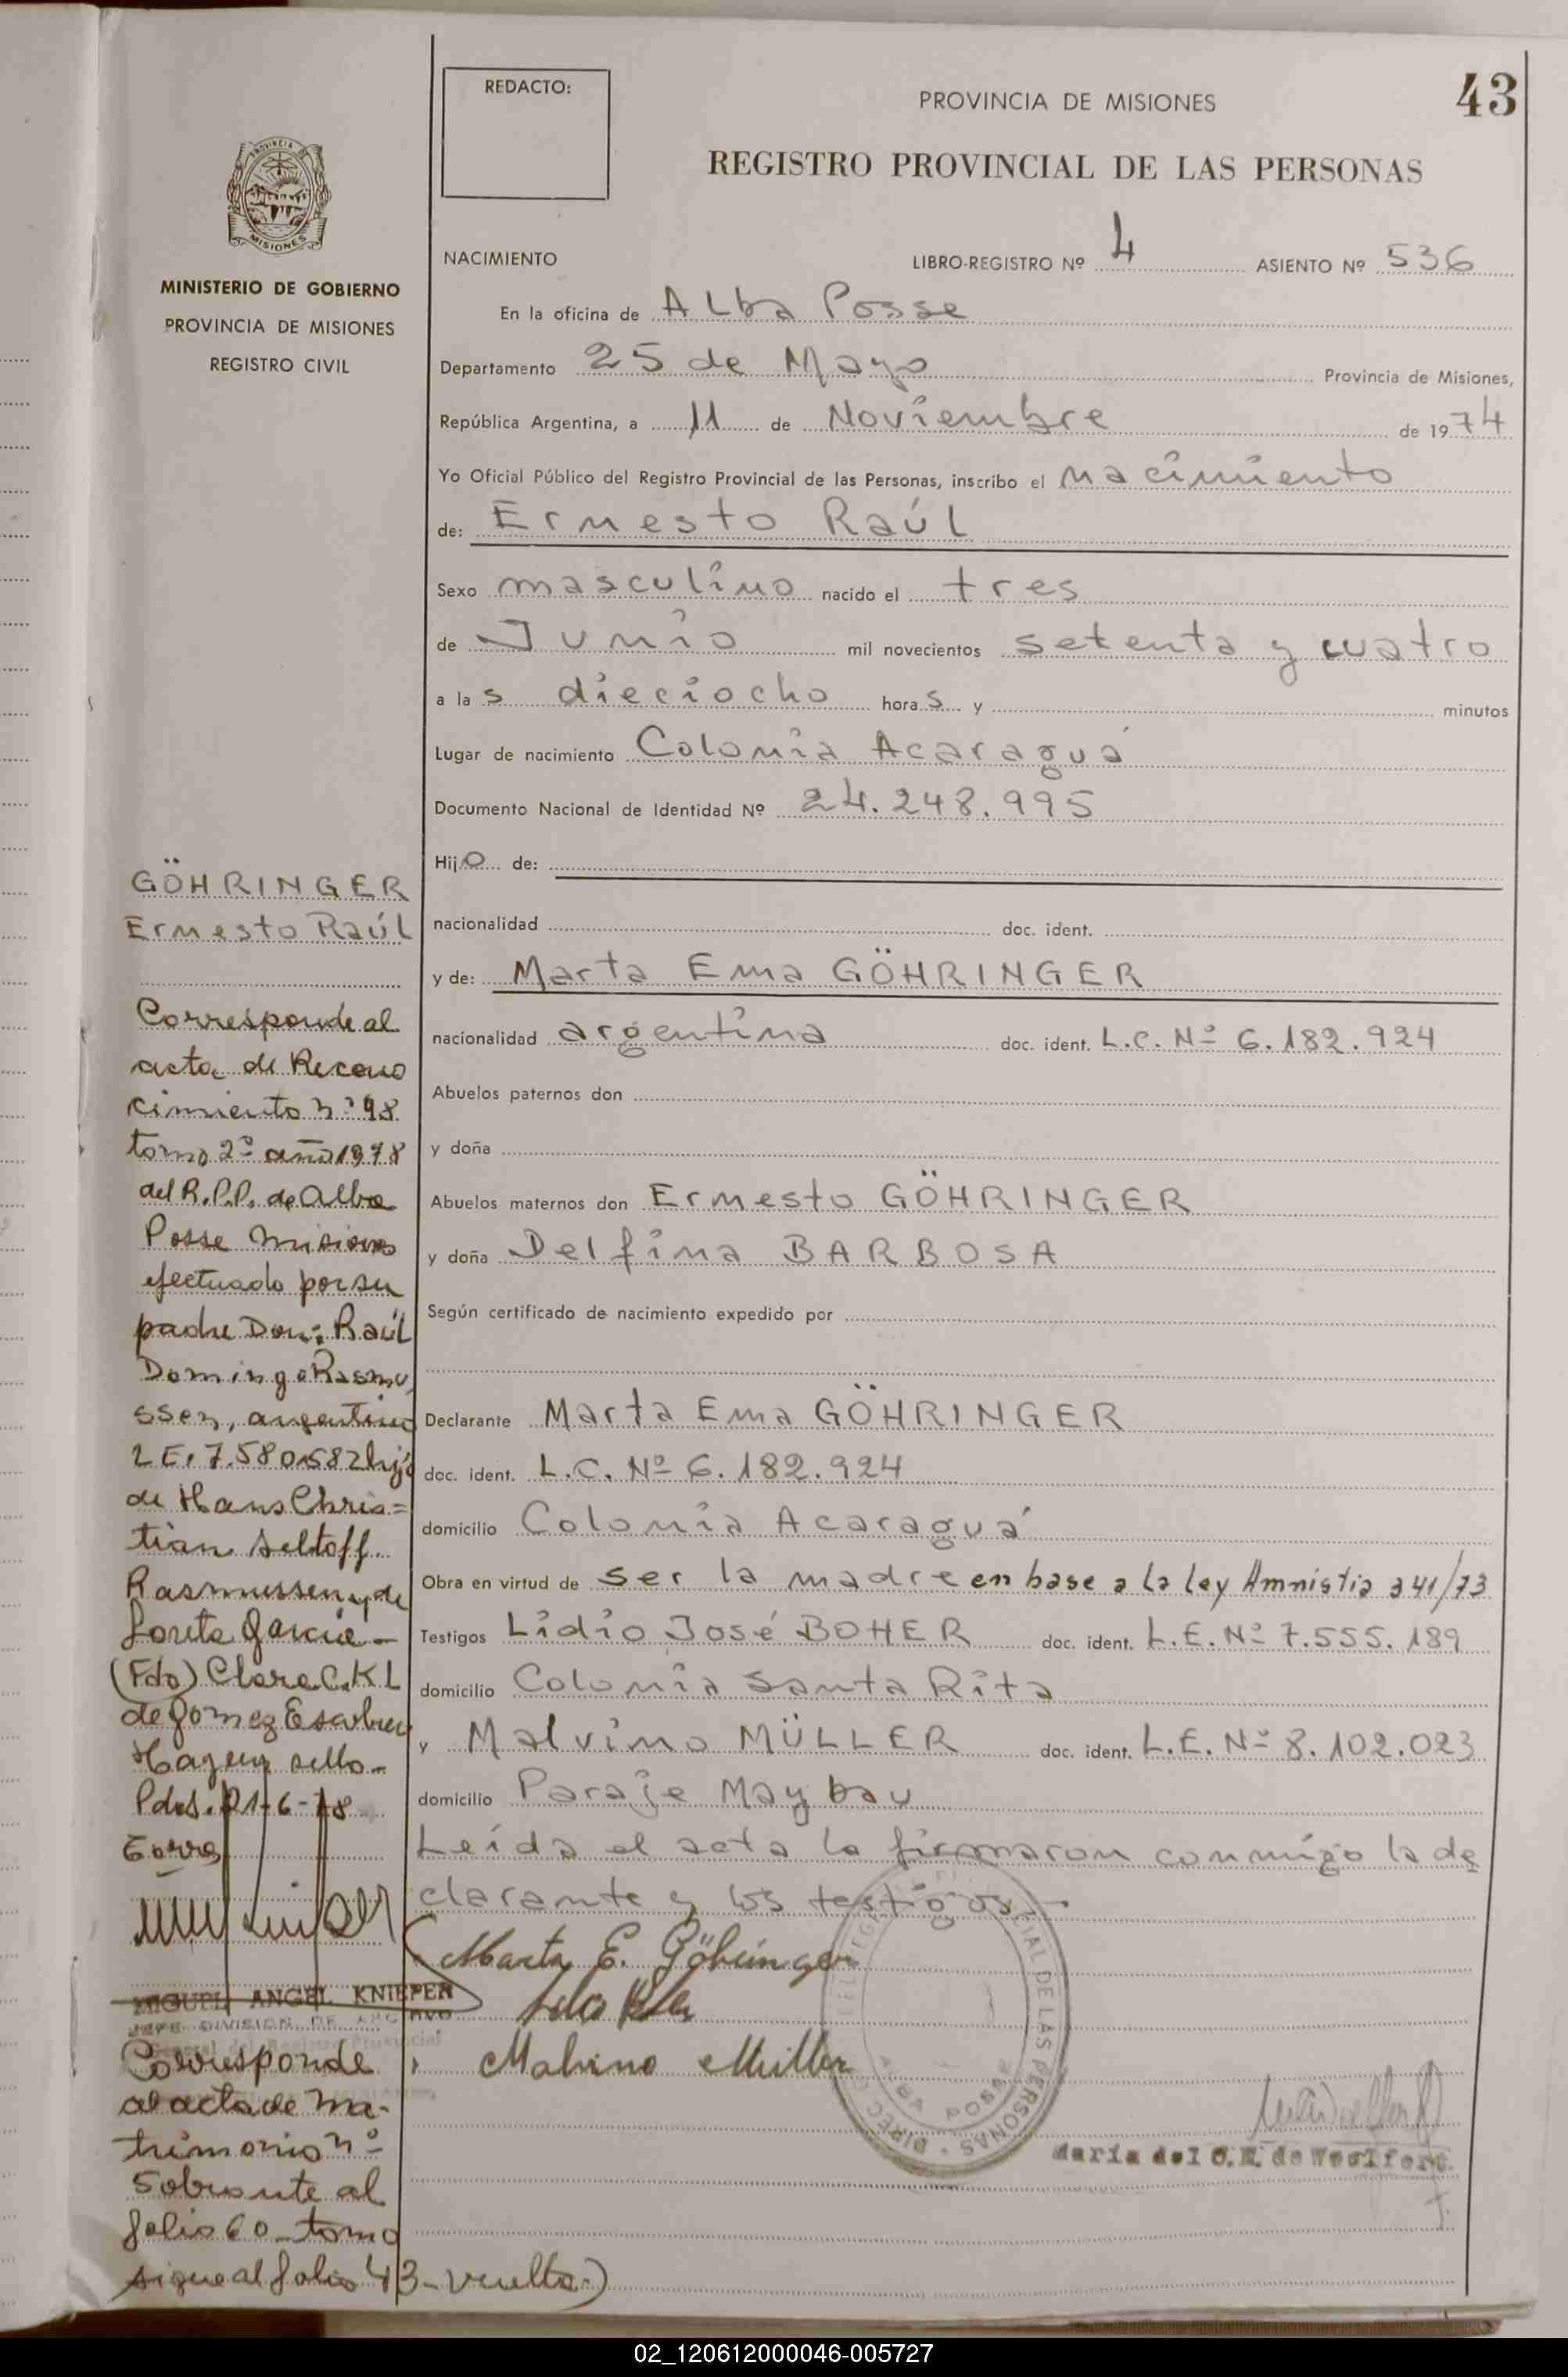 43
REDACTO:
PROVINCIA DE MISIONES
REGISTRO PROVINCIAL DE LAS PERSONAS
PROVINCIA DE
MISIONES
MINISTERIO DE GOBIERNO
PROVINCIA DE MISIONES
REGISTRO CIVIL
NACIMIENTO LIBRO-REGISTRO Nº 4 ASIENTO Nº 536
En la oficina de Alba Posse
Departamento 25 de Mayo Provincia de Misiones,
República Argentina, a 11 de Noviembre de 1974
Yo Oficial Público del Registro Provincial de las Personas, inscribo el nacimiento
de: Ernesto Raúl
Sexo masculino nacido el tres
de Junio mil novecientos setenta y cuatro
a las dieciocho horas y minutos
Lugar de nacimiento Colonia Acaraguá
Documento Nacional de Identidad Nº 24.248.995
Hijo de:
nacionalidad doc. ident.
y de: Marta Ema GÖHRINGER
nacionalidad argentina doc. ident. L.C. Nº 6.182.924
Abuelos paternos don
y doña
Abuelos maternos don Ernesto GÖHRINGER
y doña Delfina BARBOSA
Según certificado de nacimiento expedido por
Declarante Marta Ema GÖHRINGER
doc. ident. L.C. Nº 6.182.924
domicilio Colonia Acaraguá
Obra en virtud de ser la madre en base a la ley Amnistia 341/73
Testigos Lidio José BOHER doc. ident. L.E. Nº 7.555.189
domicilio Colonia Santa Rita
y Malvino MÜLLER doc. ident. L.E. Nº 8.102.023
domicilio Paraje Maybau
Leída el acta la firmaron conmigo la de
clarante y los testigos.-
Marta E. Göhringer
Malvino Müller
DIREC
PERSONAS
ALBA POSSE
María del C.
GÖHRINGER
Ernesto Raúl
Corresponde al
acta de Recono
cimiento nº 98
tomo 2º año 1978
del R.P.P. de Alba
Posse Misiones
efectuado por su
padre Don: Raúl
Domingo Rasmu
ssen, argentino
L E. 7.580.582 hijo
de Hans Chris=
tian
Rasmussen y de
Loreta Garcia -
(Fdo) Clara C. K L
de Gomez
Hay un sello -
Pdas. 21-6-78
MIGUEL ANGEL KNIEPER
JEFE DIVISION DE ARCHIVO
Corresponde
al acta de Ma-
trimonio nº
Sobrante al
folio 60 tomo
sigue al folio 43 - vuelta -)
02_120612000046-005727